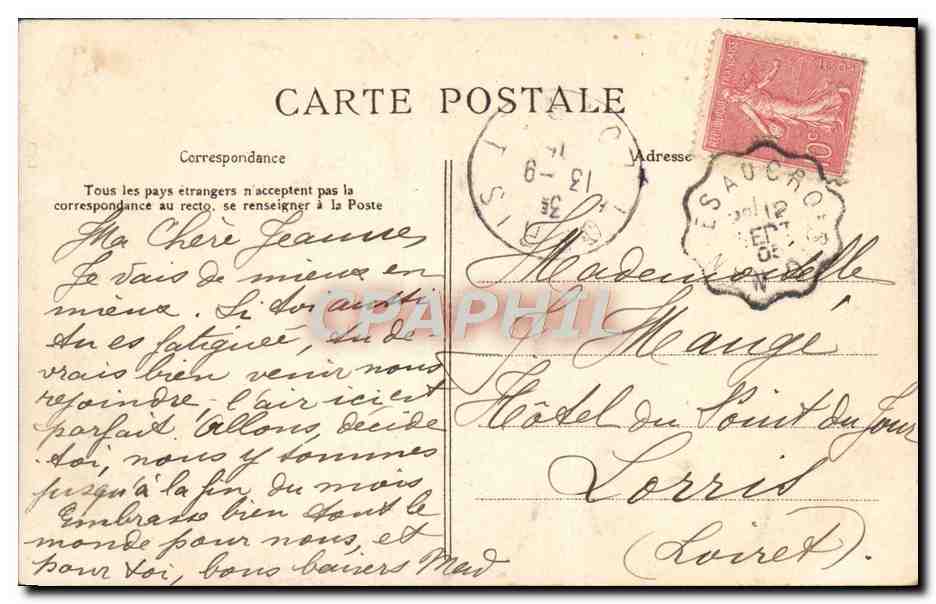 CARTE POSTALE
Correspondance
Adresse
Tous les pays étrangers n'acceptent pas la
correspondance au recto, se renseigner à la Poste
Ma Chère Jeanne
Je vais de mieux en
mieux. Si toi aussi
tu es fatiguée, tu de-
vrais bien venir nous
rejoindre, l'air ici est
parfait. Allons, décide
toi, nous y sommes
jusqu'à la fin du mois
Embrasse bien tout le
monde pour nous, et
pour toi, bons baisers
Mademoiselle
J. Maugé
Hôtel du Point du Jour
Lorris
(Loiret).
CPAPHIL
13 - 9
12
SEPT
05